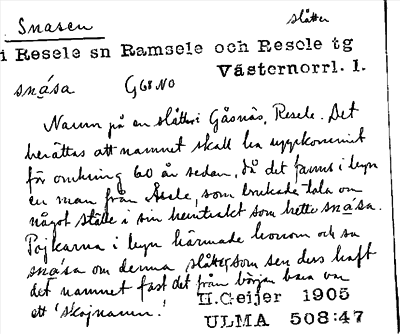 Snasen slåtter
i Resele sn Ramsele och Resele tg
Västernorrl. l.
snása G68NO
Namn på en slåtter i Gåsnäs, Resele. Det
berättas att namnet skall ha uppkommit
för omkring 60 år sedan, då det fanns i byn
en man från Åsele, som brukade tala om
något ställe i sin hemtrakt som hette snása.
Pojkarna i byn härmade honom och sa
snása om denna slåtter, som sen dess haft
det namnet fast det från början bara var
ett 'skojnamn'.
H.Geijer 1905
ULMA 508:47